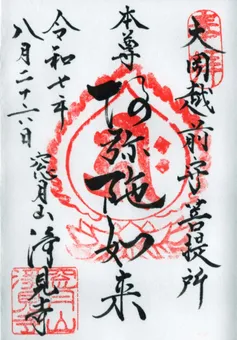 大岡越前守菩提所
本尊
阿弥陀如来
令和七年
八月二十六日
窓月山浄見寺